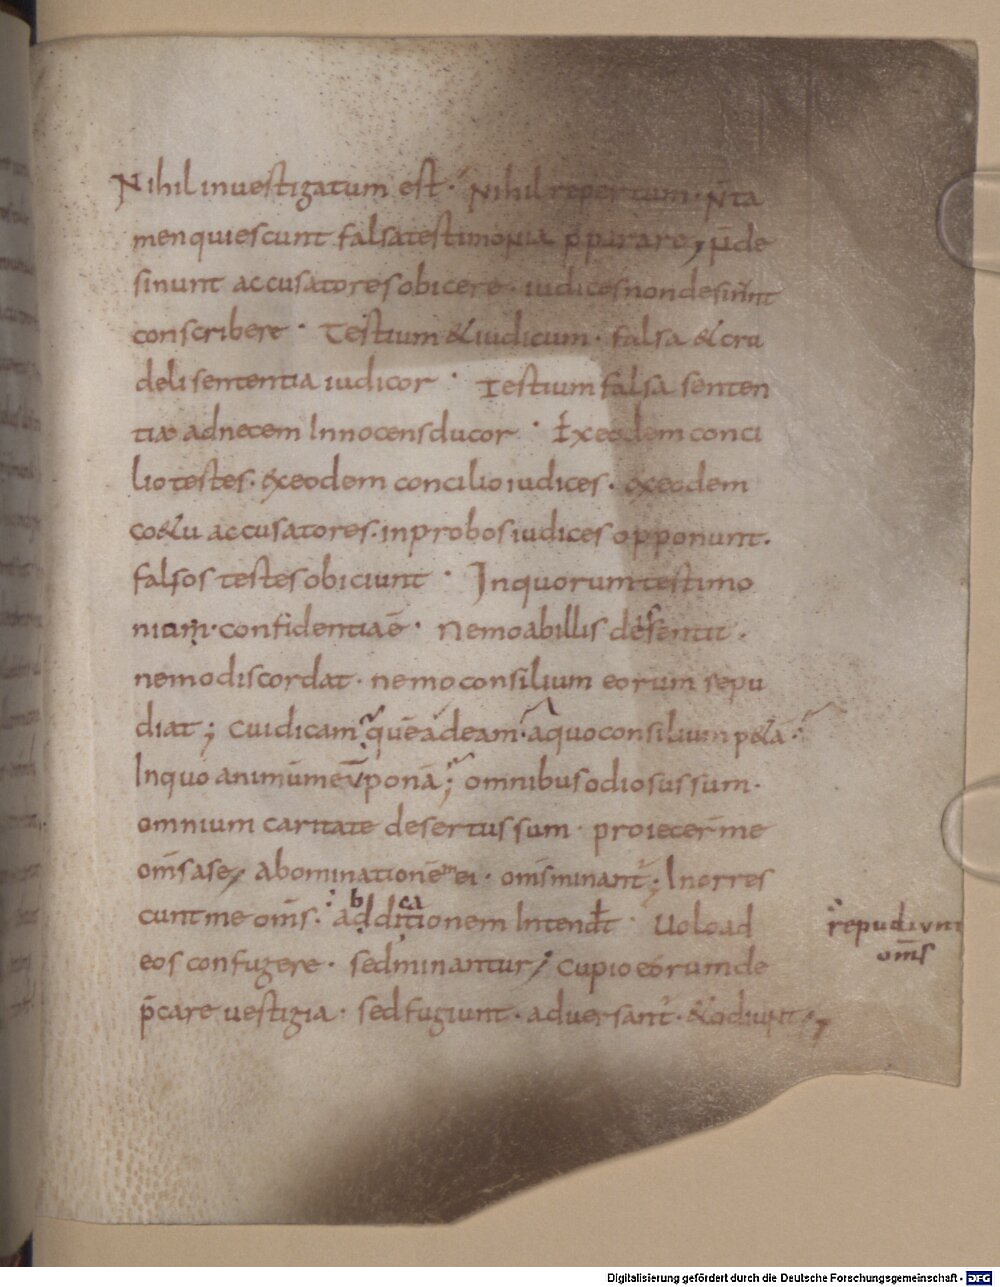 Nihil investigatum est. Nihil repertum. Nta
men quiescunt falsa testimonia p̄parare, n̄ de
sinunt accusatores obicere. iudices non desinunt
conscribere. Testium & iudicum. falsa & cru
deli sententia iudicor. Testium falsa senten
tiæ ad necem Innocens ducor. Ex eodem conci
lio testes. ex eodem concilio iudices. ex eodem
co&u accusatores. inprobos iudices opponunt.
falsos testes obiciunt. In quorum testimo
nium. confidentia ē. Nemo ab illis desentit.
nemo discordat. nemo consilium eorum repu
diat; cui dicam. quē adeam. a quo consilium p&ā.
In quo animū meū ponā; omnibus odiosus sum.
omnium caritate desertus sum. proiecer̄ me
om̄s a se, abominationē mei. om̄s minant̄; Inorres
cunt me om̄s. ad ditionem Intend̄t. Uolo ad
b ca
repudiunt
om̄s
eos confugere. sed minantur, cupio eorum de
p̄care vestigia. sed fugiunt. adversant̄. & odiunt;
Digitalisierung gefördert durch die Deutsche Forschungsgemeinschaft - DFG